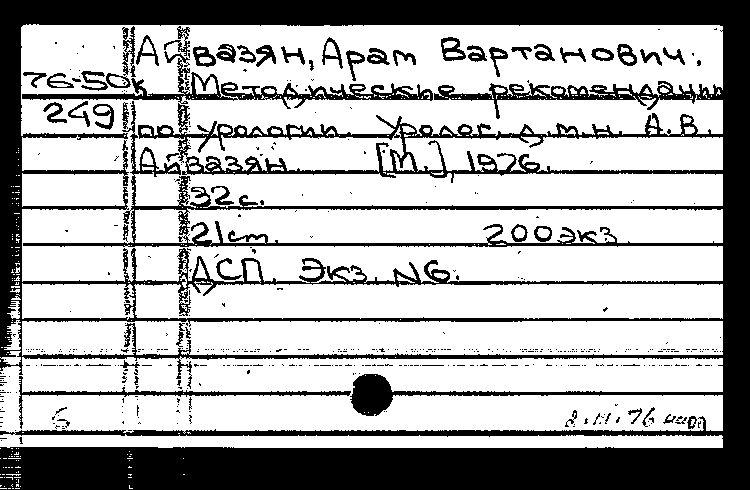 Айвазян, Арам Вартанович.
76-50к Методические рекомендации
249 по урологии. Уролог. д.м.н. А.В.
Айвазян. [М.], 1976.
32 с.
21 см. 200 экз.
ДСП. Экз. N6.
6 2.11.76